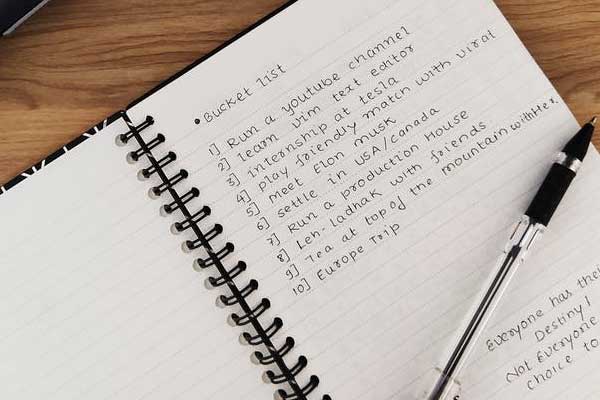 • Bucket list
1] Run a youtube channel
2] learn vim text editor
3] internship at tesla
4] play friendly match with virat
5] meet Elon musk
6] settle in USA/canada
7] Run a production House
8] Leh-ladhak with friends
9] Tea at top of the mountain with Her.
10] Europe Trip
Everyone has thei
Destiny!
Not Everyone
choice to